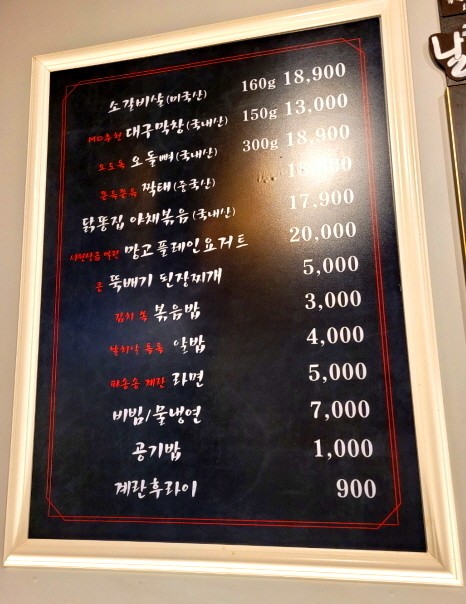 소갈비살(미국산) 160g 18,900
MD추천 대구막창(국내산) 150g 13,000
오도독 오돌뼈(국내산) 300g 18,900
쫀득쫀득 짝태(중국산)
닭똥집 야채볶음(국내산) 17,900
망고플레인요거트 20,000
큰 뚝배기 된장찌개 5,000
김치 쏙 볶음밥 3,000
날치알 톡톡 알밥 4,000
파송송 계란 라면 5,000
비빔/물냉면 7,000
공기밥 1,000
계란후라이 900